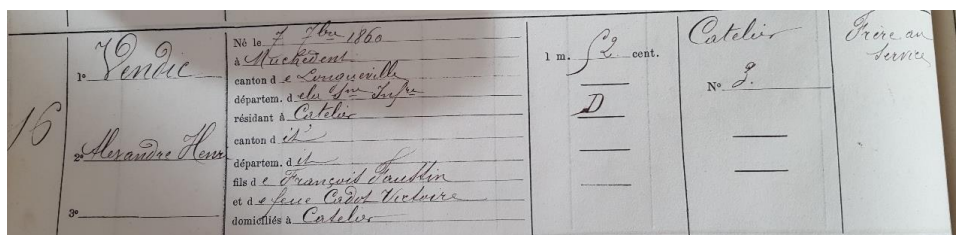 16
1º Vendic
2º Alexandre Henri
3º
Né le 7 7bre 1860
à Muchedent
canton de Longueville
départem. de la Sne Infre
résidant à Catelier
canton d it
départem. d it
fils de François Faustin
et de feue Cadot Victoire
domiciliés à Catelier
1 m. 62 cent.
D
Catelier
Nº 3.
Frère au
service